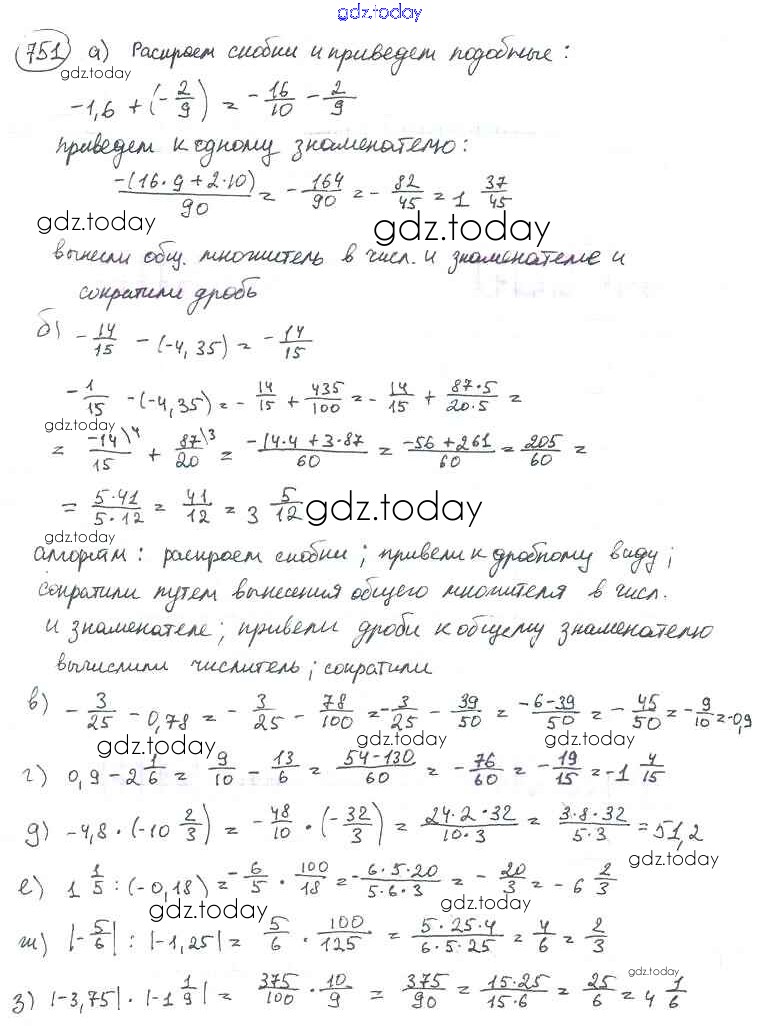 gdz.today
751 а) Раскроем скобки и приведем подобные:
gdz.today
-1,6 + (-2/9) = -16/10 - 2/9
приведем к одному знаменателю:
-(16·9+2·10)/90 = -164/90 = -82/45 = 1 37/45
gdz.today gdz.today
вынесли общ. множитель в числ. и знаменателе и
сократили дробь
б) -14/15 - (-4,35) = -14/15
-1/15 - (-4,35) = -14/15 + 435/100 = -14/15 + 87·5/20·5 =
gdz.today
= -14\4/15 + 87\3/20 = -14·4+3·87/60 = -56+261/60 = 205/60 =
= 5·41/5·12 = 41/12 = 3 5/12 gdz.today
gdz.today
алгоритм: раскроем скобки; привели к дробному виду;
сократили путем вынесения общего множителя в числ.
и знаменателе; привели дроби к общему знаменателю
вычислили числитель; сократили
в) -3/25 - 0,78 = -3/25 - 78/100 = -3/25 - 39/50 = -6-39/50 = -45/50 = -9/10 = -0,9
gdz.today gdz.today
г) 0,9 - 2 1/6 = 9/10 - 13/6 = 54-130/60 = -76/60 = -19/15 = -1 4/15
д) -4,8 · (-10 2/3) = -48/10 · (-32/3) = 24·2·32/10·3 = 3·8·32/5·3 = 51,2
gdz.today
е) 1 1/5 : (-0,18) = -6/5 · 100/18 = -6·5·20/5·6·3 = -20/3 = -6 2/3
gdz.today gdz.today
ж) |-5/6| : |-1,25| = 5/6 · 100/125 = 5·25·4/6·5·25 = 4/6 = 2/3
gdz.today
з) |-3,75| · |-1 1/9| = 375/100 · 10/9 = 375/90 = 15·25/15·6 = 25/6 = 4 1/6